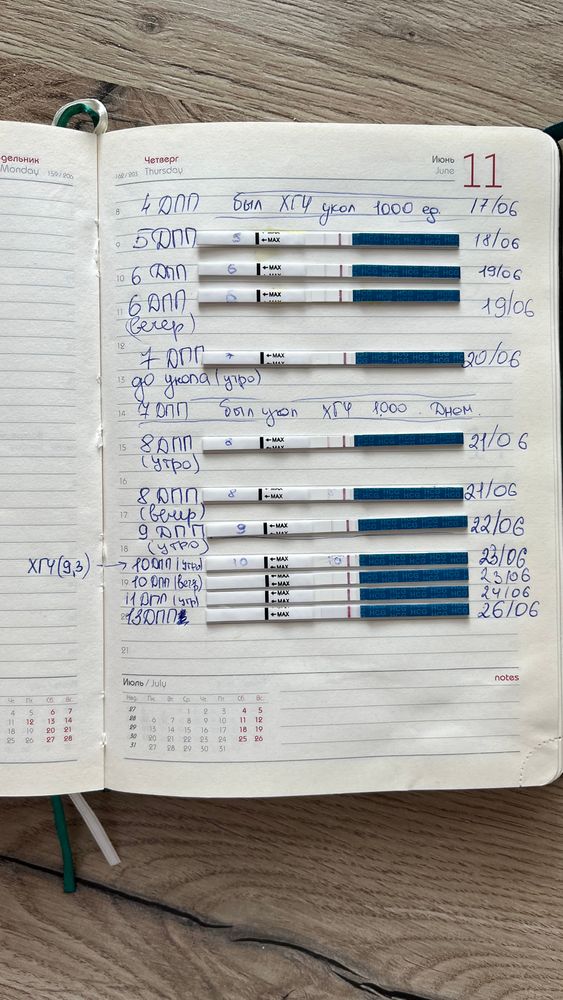 дельник
Monday 159/206
Четверг
162/203 Thursday
Июнь
June
11
8 4 ДПП был ХГЧ укол 1000 ед. 17/06
9 5 ДПП 5 ←MAX 18/06
10 6 ДПП 6 ←MAX 19/06
11 6 ДПП 6 ←MAX 19/06
(вечер)
12 7 ДПП 7 ←MAX HCG HCG HCG 20/06
13 до укола (утро)
14 7 ДПП был укол ХГЧ 1000. Днем.
15 8 ДПП 8 ←MAX 21/06
(утро)
8 ДПП 8 ←MAX 21/06
17 (вечер)
9 ДПП 9 ←MAX 22/06
18 (утро)
ХГЧ (9,3) → 10 ДПП (утр) 10 ←MAX 10 23/06
19 10 ДПП (веч) ←MAX 23/06
11 ДПП (утр) ←MAX 24/06
20 13 ДПП ←MAX 26/06
21
Июль / July
notes
Нед. Пн Вт Ср Чт Пт Сб Вс
27 1 2 3 4 5
28 6 7 8 9 10 11 12
29 13 14 15 16 17 18 19
30 20 21 22 23 24 25 26
31 27 28 29 30 31
Чт Пт Сб Вс
4 5 6 7
11 12 13 14
18 19 20 21
25 26 27 28